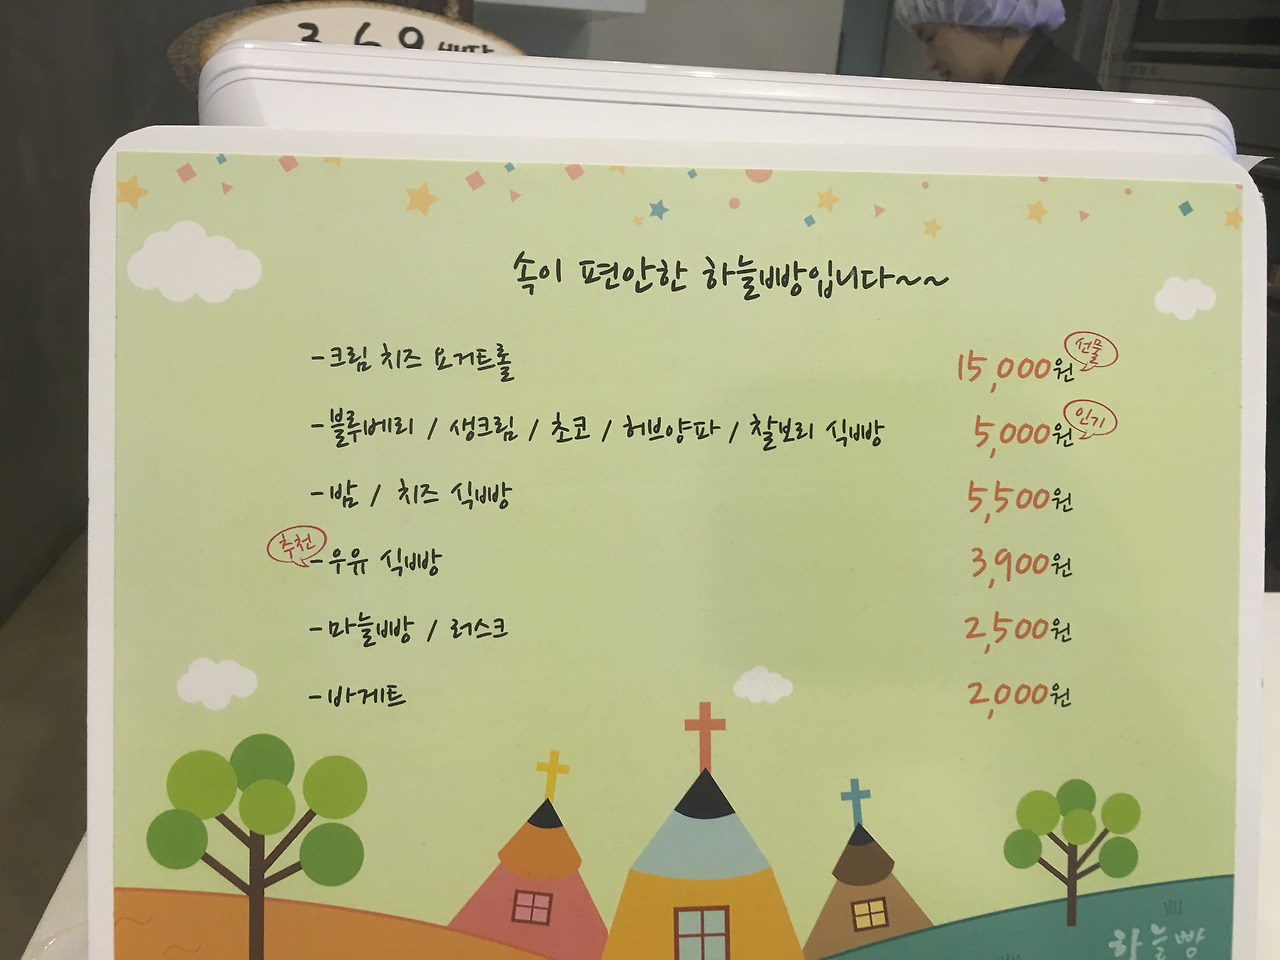 3 6 9
속이 편안한 하늘빵입니다~~
-크림 치즈 요거트롤 15,000원 선물
-블루베리 / 생크림 / 초코 / 허브양파 / 찰보리 식빵 5,000원 인기
-밤 / 치즈 식빵 5,500원
추천 -우유 식빵 3,900원
-마늘빵 / 러스크 2,500원
-바게트 2,000원
하늘빵